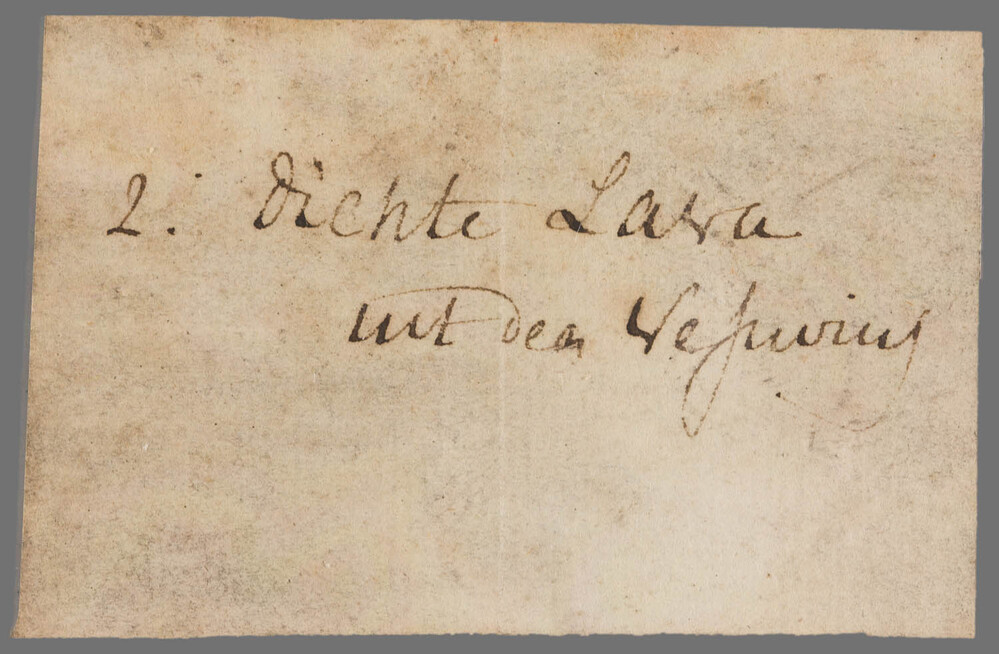 2. dichte Lava
uit den Vesuvius